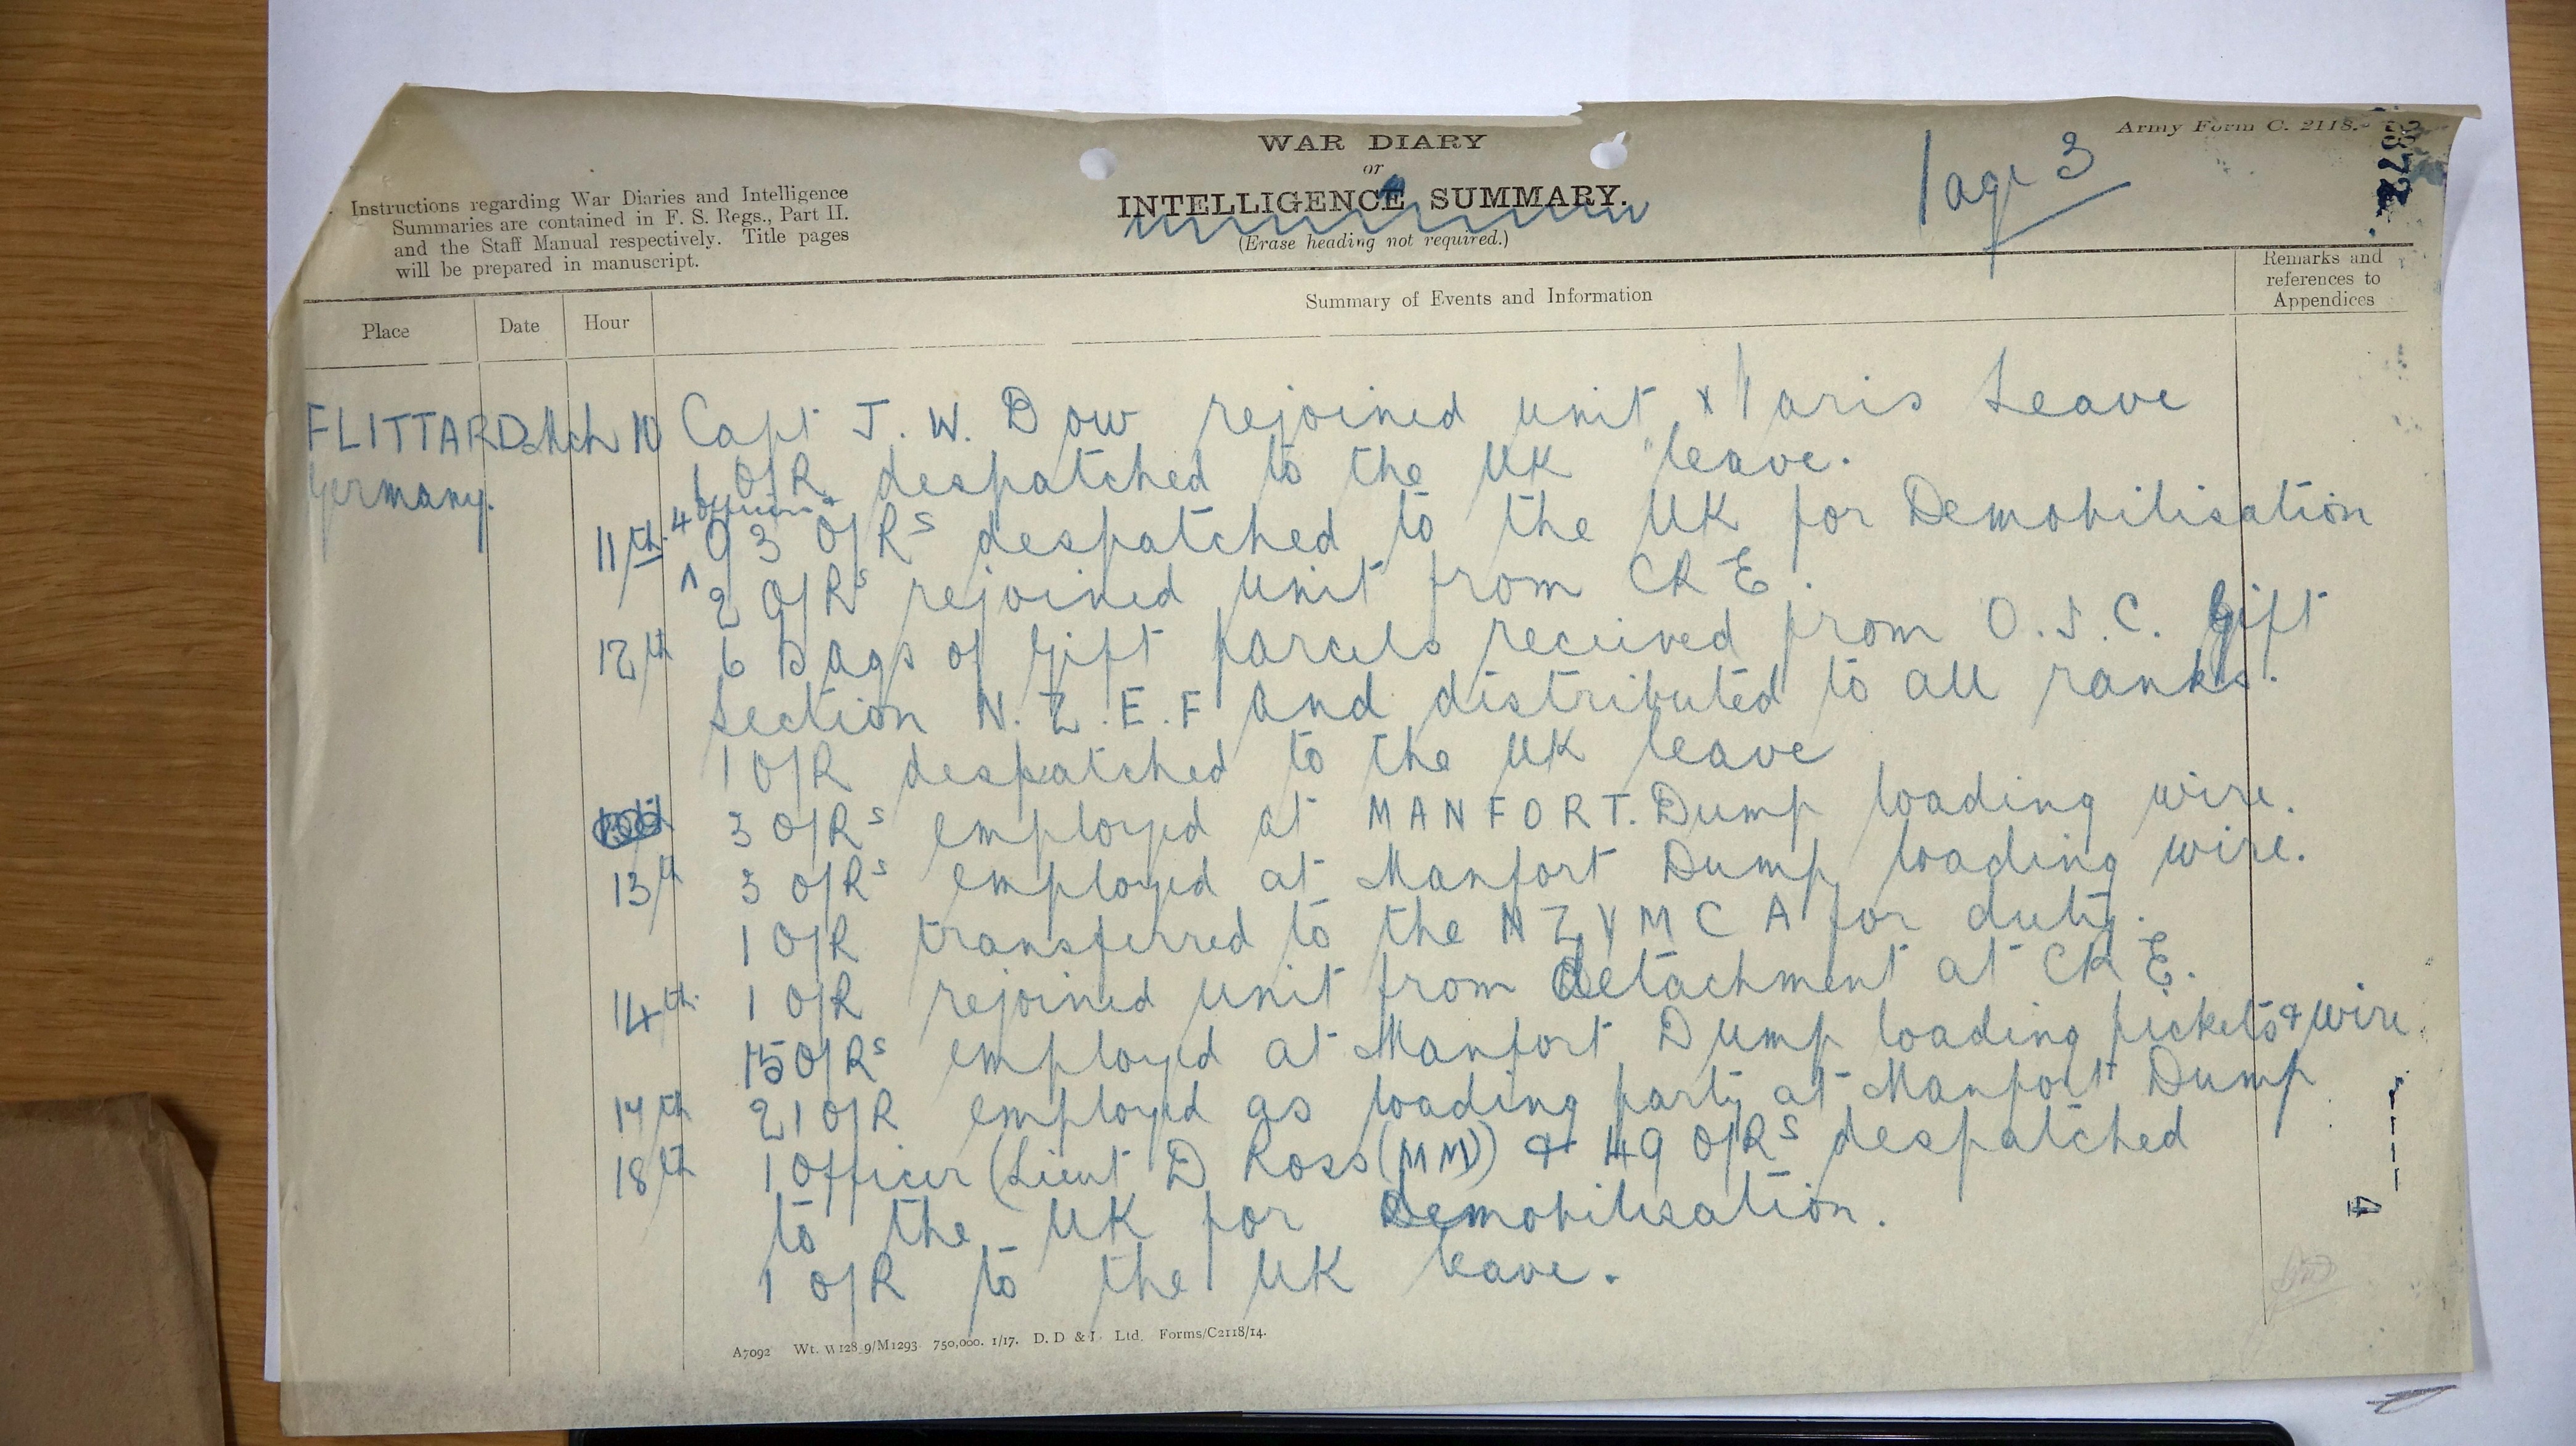 Army Form C. 2118.
WAR DIARY
or
INTELLIGENCE SUMMARY.
(Erase heading not required.)
Page 3
Instructions regarding War Diaries and Intelligence
Summaries are contained in F. S. Regs., Part II.
and the Staff Manual respectively. Title pages
will be prepared in manuscript.
Place Date Hour Summary of Events and Information Remarks and
references to
Appendices
FLITTARD Mch 10 Capt J. W. Dow rejoined unit x Paris Leave
Germany. 1 O/R despatched to the UK leave.
4 Officers +
11th 93 O/Rs despatched to the UK for Demobilisation
2 O/Rs rejoined unit from CRE.
12th 6 Bags of Gift parcels received from O. I. C. Gift
Section N.Z.E.F and distributed to all ranks.
1 O/R despatched to the UK leave
3 O/Rs employed at MANFORT. Dump loading wire.
13th 3 O/Rs employed at Manfort Dump loading wire.
1 O/R transferred to the NZYMCA for duty.
14th 1 O/R rejoined unit from detachment at CRE.
15 O/Rs employed at Manfort Dump loading pickets & wire
17th 21 O/R employed as loading party at Manfort Dump
18th 1 Officer (Lieut D Ross (MM) & 49 O/Rs despatched
to the UK for Demobilisation.
1 O/R to the UK leave.
A7092 Wt. W128_9/M1293 750,000. 1/17. D. D & L Ltd. Forms/C2118/14.